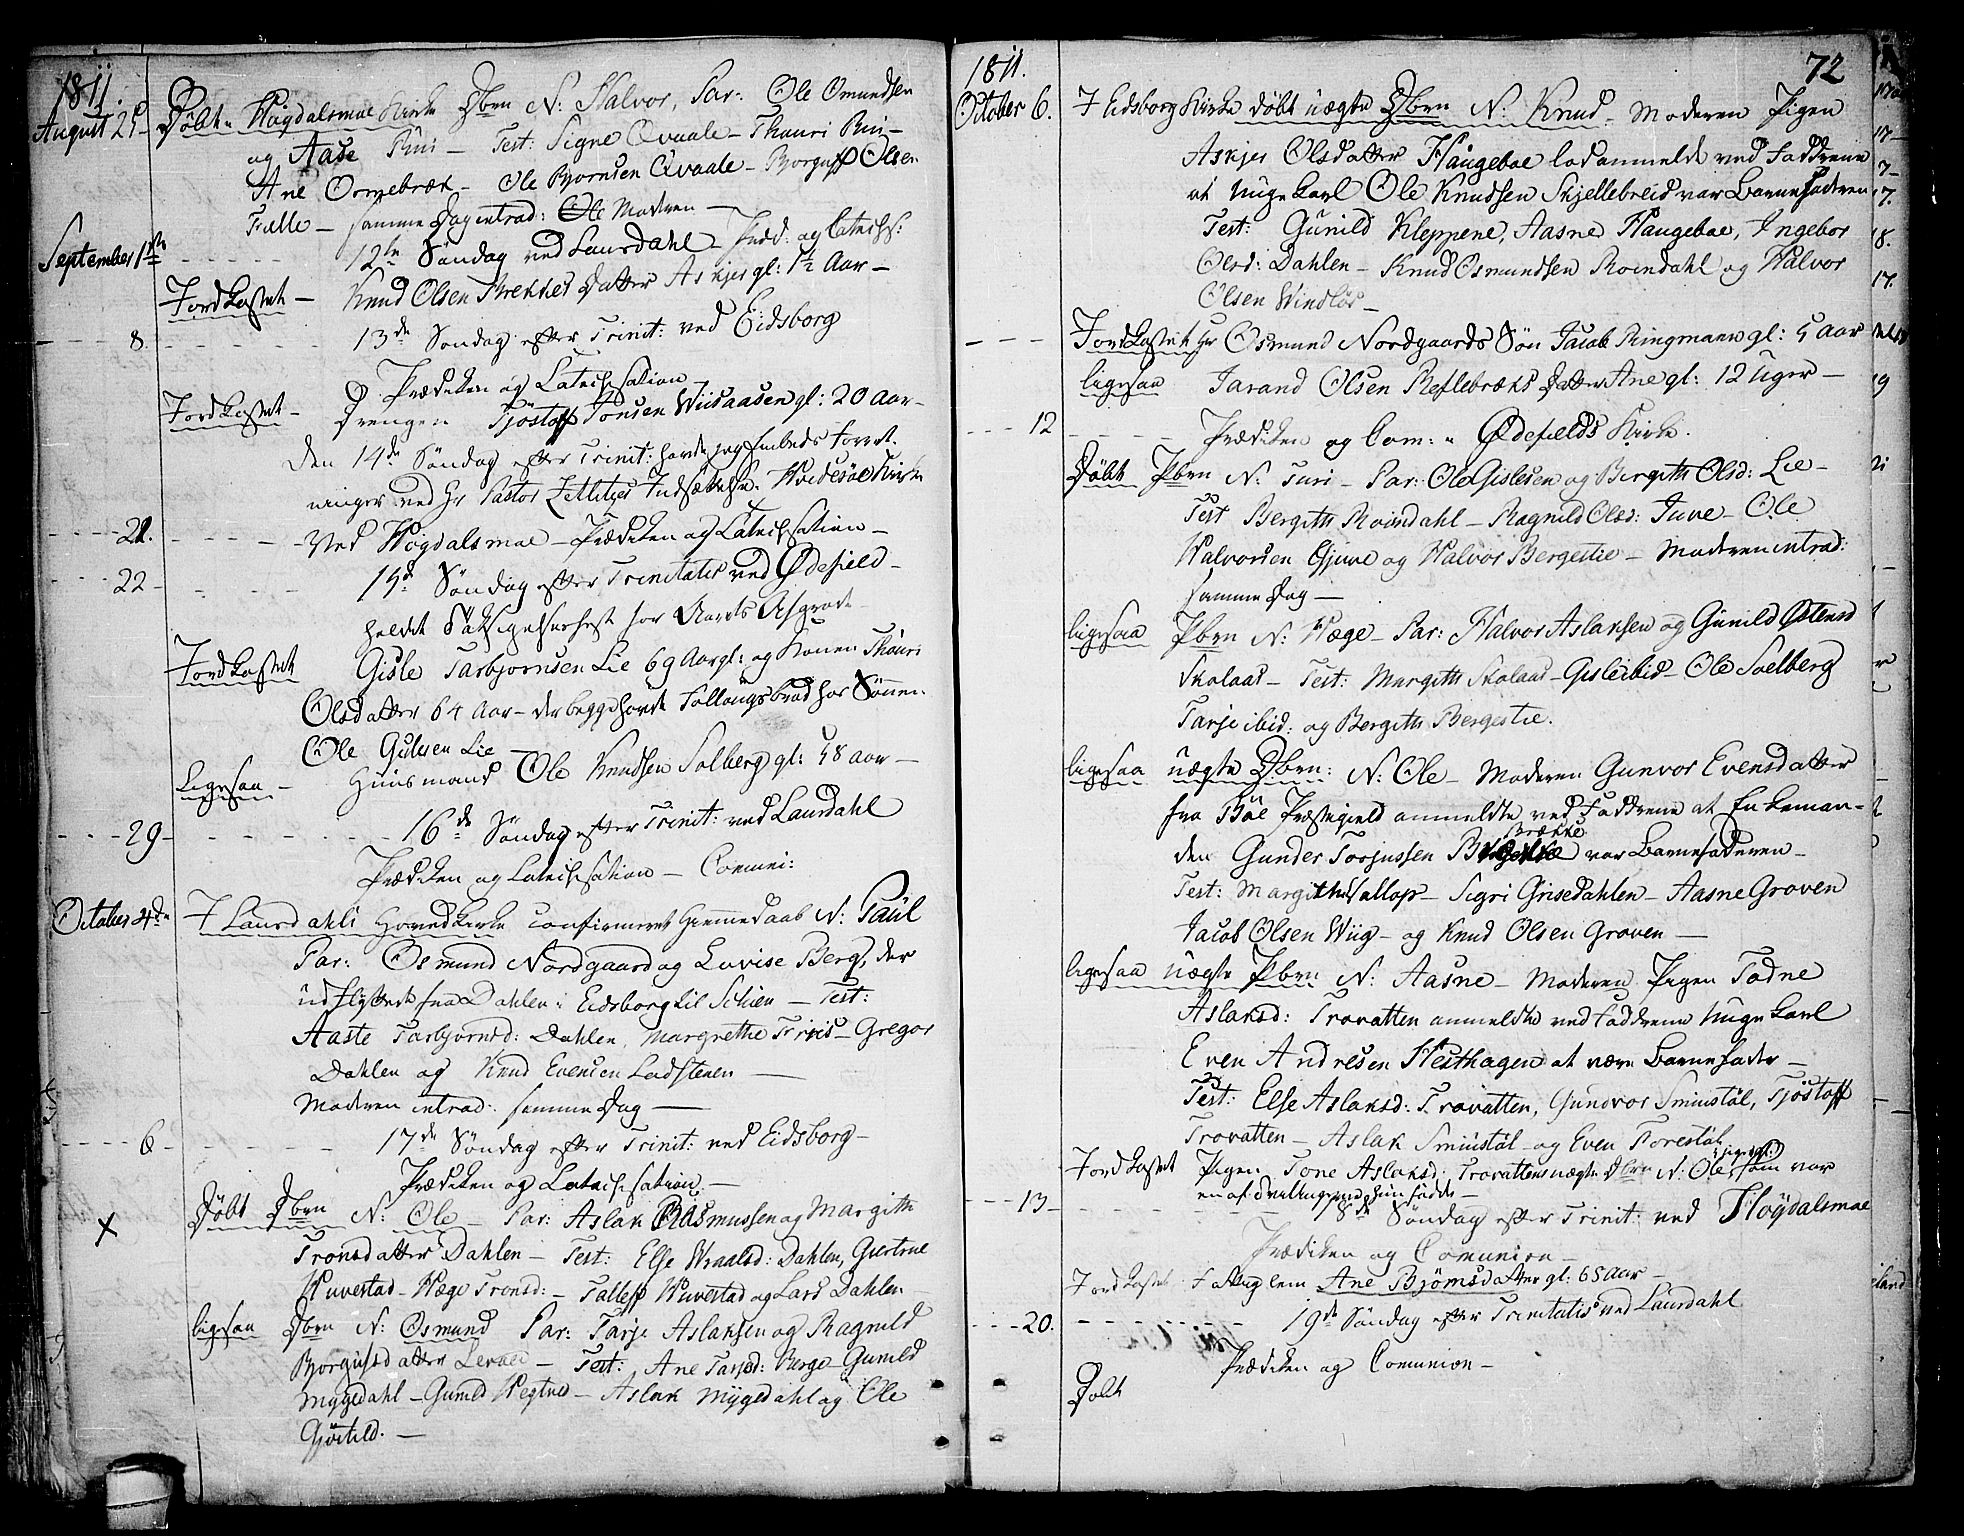 1811.
August 25 Döbt. Høgdalsmoe Kirke Dbrn N: Halvor, Par: Ole Omundsen
og Aase Rui — Test: Signe Qvaale — Thauri Rui —
Ane Ormebræk — Ole Bjornsen Qvaale — Borguff Olsen
Fælle — samme Dag introd: Ole Moderen —
September 1ste 12te Söndag ved Laurdahl — Præd: og Catechs:
Jordkastet — Knud Olsen Brekkes Datter Askjer gl: 1½ Aar —
8. 13de Söndag efter Trinit: ved Eidsborg
Prædiken og Catechisation
Jordkastet — Drengen Tjöstoff Jonsen Wiisaasen gl: 20 Aar —
Den 14de Söndag efter Trinit: havde jeg Embeds Forret-
ninger ved Hr Pastor Zetlitzes Indsættelse. Hvidesöe Kirke
21. Ved Högdalsmoe — Prædiken og Catechisation —
22 — 15de Söndag efter Trinitatis ved Ødefield —
holdet Taksigelsesfest for Aarets Afgrøde
Jordkastet Gisle Tarbjornsen Lie 69 Aar gl: og Konen Thauri
Olsdatter 64 Aar — der begge havde Follougsbrød hos Sönnen
Ole Gislesen Lie —
Ligesaa — Huusmand Ole Knudsen Solberg gl: 58 aar —
29 — 16de Söndag efter Trinit: ved Laurdahl
Prædiken og Catechisation — Comuni:
October 4de I Laurdahls Hovedkirke confirmeret Hiemmedaab N: Paul
Par: Osmund Nordgaard og Lovise Berg, der
udflyttede fra Dahlen i Eidsborg til Schien — Test:
Aaste Tarbjornsd: Dahlen, Margrethe Friis — Gregor
Dahlen og Knud Evensen Ladstenen —
Moderen introd: samme Dag —
6 — 17de Söndag efter Trinit: ved Eidsborg —
Prædiken og Catechisation —
X Döbt Dbrn N: Ole — Par: Aslak Rasmussen og Margith
Tronsdatter Dahlen — Test: Else Wraalsd: Dahlen, Giertrue
Huvestad — Hæge Tronsd: — Talleff Huvestad og Lars Dahlen —
ligesaa Dbrn N: Osmund Par: Tarje Aslaksen og Ragnild
Borgufsdatter Lervei — Test: Ane Tarjed: Berge — Gunild
Mygedahl — Gunild Hegtved — Aslak Mygedahl og Ole
Gjöstild. —
1811. 72
October 6. I Eidsborg Kirke döbt uægte Dbrn N: Knud — Moderen Pigen
Askjer Olsdatter Haugeboe lod anmelde ved Faddrene
at Ungekarl Ole Knudsen Skjellebreid var Barnefaderen
Test: Gunild Kleppene, Aasne Haugeboe, Ingebor
Olsd: Dahlen — Knud Osmundsen Roindahl og Halvor
Olsen Windlös —
Jordkastet Hr Osmund Nordgaards Sön Jacob Ringmann gl: 5 Aar
ligesaa Jarand Olsen Reflebræks Datter Ane gl: 12 Uger —
12 Prædiken og Com: i Ødefields Kirke.
Döbt Pbrn N: Turi — Par: Ole Gislesen og Bergith Olsd: Lie —
Test Bergith Roindahl — Ragnild Olsd: Juve — Ole
Halvorsen Gjuve og Halvor Bergestie — Moderen introd:
samme Dag —
ligesaa Pbrn N: Hæge — Par: Halvor Aslaksen og Gunild Østensd
Skolaas — Test: Margith Skolaas — Gisle ibid — Ole Solberg
Tarje ibid: og Bergith Bergestie.
ligesaa uægte Dbrn: N: Ole — Moderen Gunvor Evensdatter
fra Böe Præstegield anmeldte ved Faddrene at Enkeman-
den Gunder Torjussen Brække var Barnefaderen —
Test: Margith Sallop — Sigri Grisedahlen — Aasne Groven
Jacob Olsen Wiig — og Knud Olsen Groven —
ligesaa uægte Pbrn N: Aasne — Moderen Pigen Tone
Aslaksd: Trovatten anmeldte ved Faddrene Ungekarl
Even Andresen Hesthagen at være Barnefader —
Test: Else Aslaksd: Trovatten, Gundvor Smiustöl, Tjöstoff
Trovatten — Aslak Smiustöl — og Even Forestöl
Jordkastet Pigen Tone Aslaksd: Trovattens uægte Dbrn N: Ole, som var
en af Tvillingerne hun födte —
13 — 18de Söndag efter Trinit: ved Høgdalsmoe
Prædiken og Comunion —
Jordkastet Fattiglem Ane Bjömsdatter gl: 65 Aar —
20. 19de Söndag efter Trinitatis ved Laurdahl
Prædiken og Comunion —
Döbt